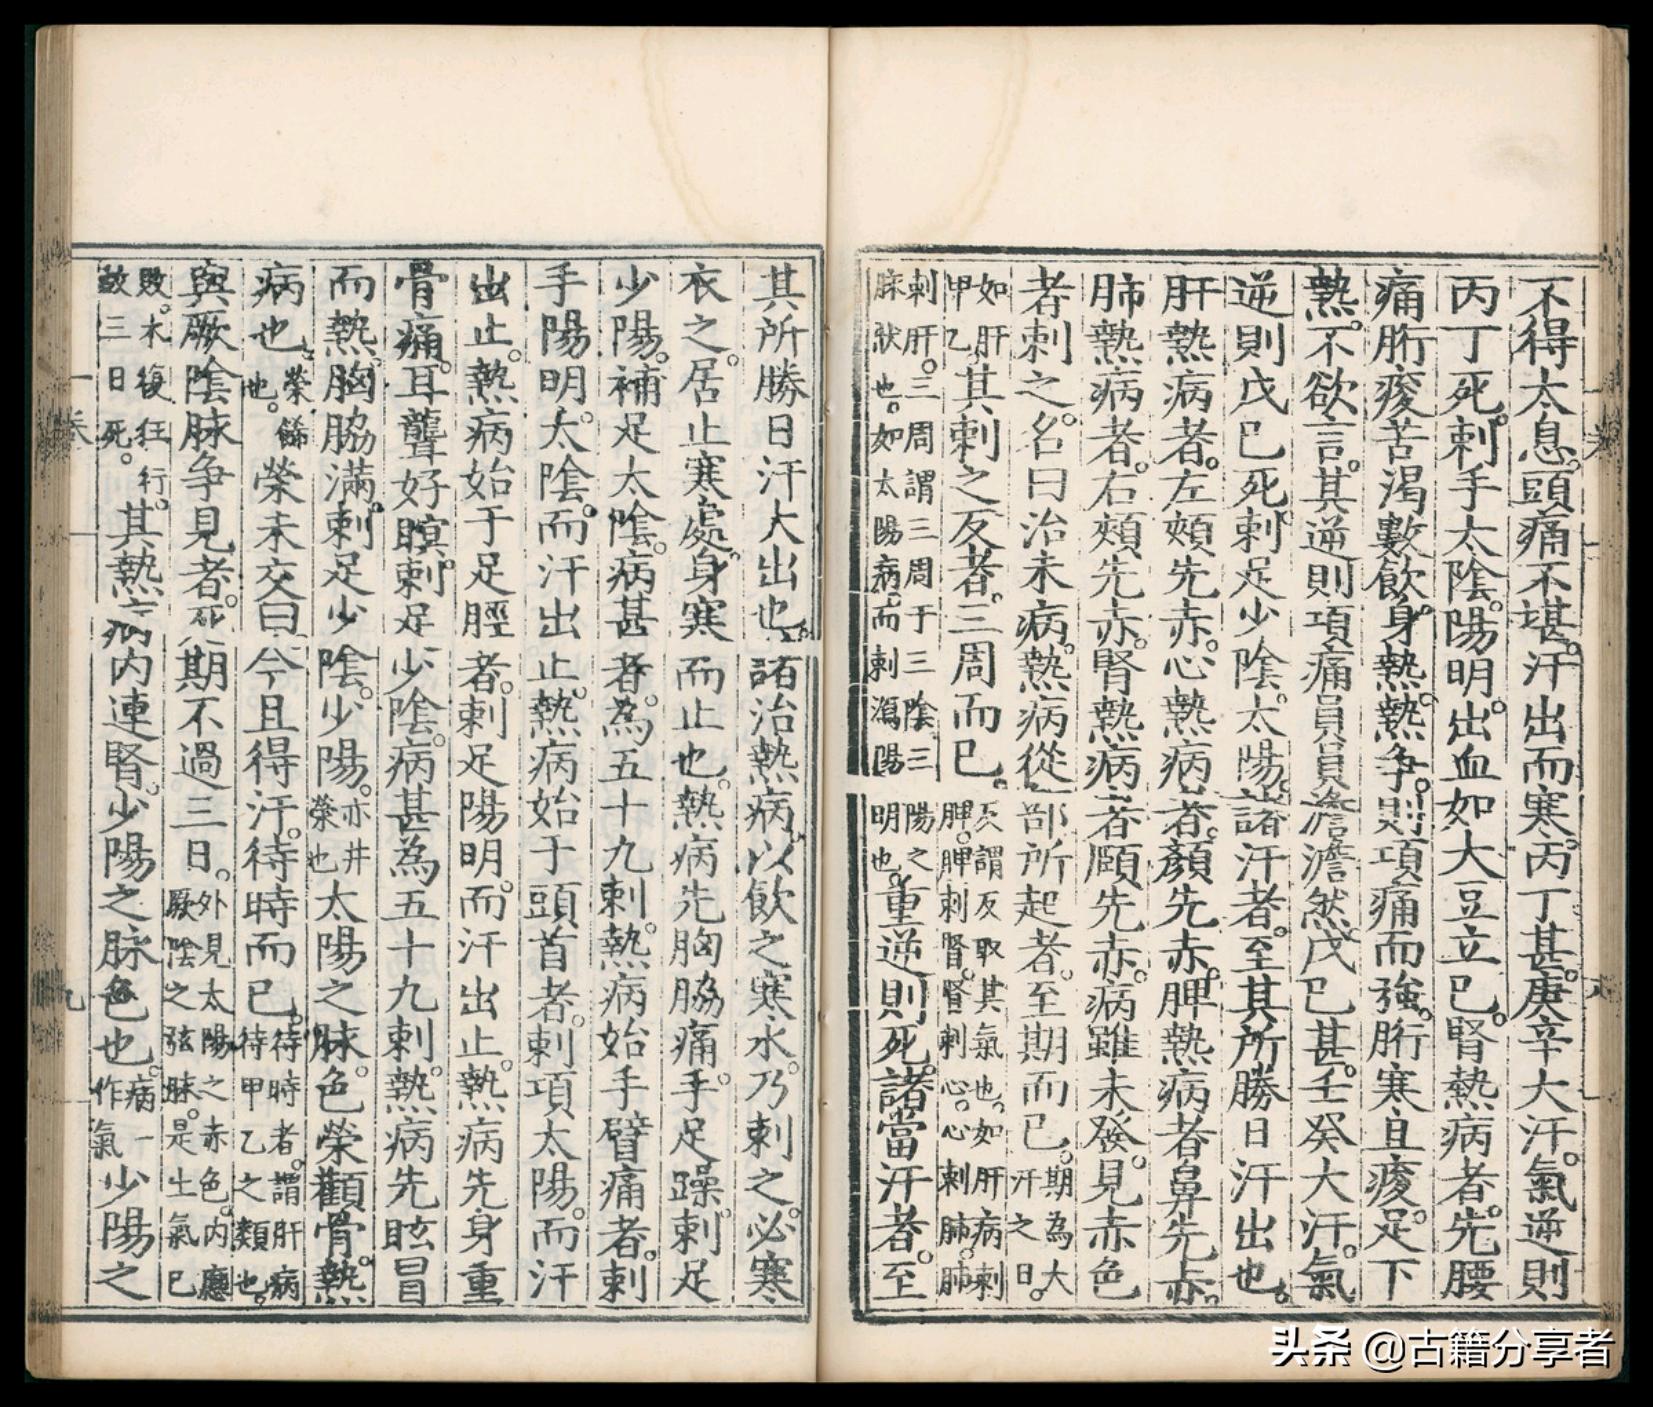 不得太息。頭痛不堪。汗出而寒。丙丁甚。庚辛大汗。氣逆則
丙丁死。刺手太陰。陽明。出血如大豆立已。腎熱病者。先腰
痛䯒痠。苦渴數飲。身熱。熱爭。則項痛而強。䯒寒且痠。足下
熱。不欲言。其逆則項痛員員澹澹然。戊已甚。壬癸大汗。氣
逆則戊已死。刺足少陰。太陽。諸汗者。至其所勝日汗出也。
肝熱病者。左頰先赤。心熱病者。顏先赤。脾熱病者鼻先赤。
肺熱病者。右頰先赤。腎熱病者。頤先赤。病雖未發。見赤色
者刺之。名曰治未病。熱病從部所起者。至期而已。期為大汗之日。
如肝甲乙其刺之反者。三周而已。反謂反取其氣也。如肝病刺脾。脾刺腎。腎刺心。心刺肺。肺
刺肝。三周謂三周于三陰三陽之脉狀也。如太陽病而刺瀉陽明也。重逆則死。諸當汗者。至
其所勝日汗大出也。諸治熱病。以飲之寒水。乃刺之。必寒
衣之。居止寒處。身寒而止也。熱病先胸脇痛。手足躁。刺足
少陽。補足太陰。病甚者。為五十九刺。熱病始手臂痛者。刺
手陽明。太陰。而汗出止。熱病始于頭首者。刺項太陽。而汗
出止。熱病始于足脛者。刺足陽明。而汗出止。熱病先身重
骨痛。耳聾好瞑。刺足少陰。病甚為五十九刺。熱病先眩冒
而熱。胸脇滿。刺足少陰。少陽。亦井榮也太陽之脉。色榮顴骨。熱
病也。榮飾也。榮未交。曰今且得汗。待時而已。待時者。謂肝病待甲乙之類也。
與厥陰脉爭見者。死期不過三日。外見太陽之赤色。内應厥陰之弦脉。是土氣已
敗。木復狂行。故三日死。其熱病内連腎。少陽之脉色也。病一作氣少陽之
卷一
九
头条 @古籍分享者